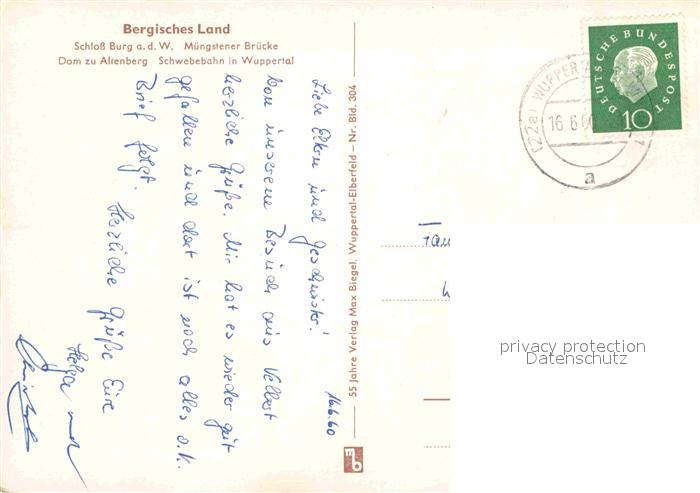 Bergisches Land
Schloß Burg a. d. W. Müngstener Brücke
Dom zu Altenberg Schwebebahn in Wuppertal
16.6.60
Liebe Eltern und Geschwister!
Von unserem Besuch aus Velbert
herzliche Grüße. Mir hat es wieder gut
gefallen und dort ist noch alles o.k.
Brief folgt. Herzliche Grüße Eure
Helga und
55 Jahre Verlag Max Biegel, Wuppertal-Elberfeld – Nr. Bld. 304
mb
DEUTSCHE BUNDESPOST
10
(22a) WUPPER
16.6.60
a
Fam
privacy protection
Datenschutz